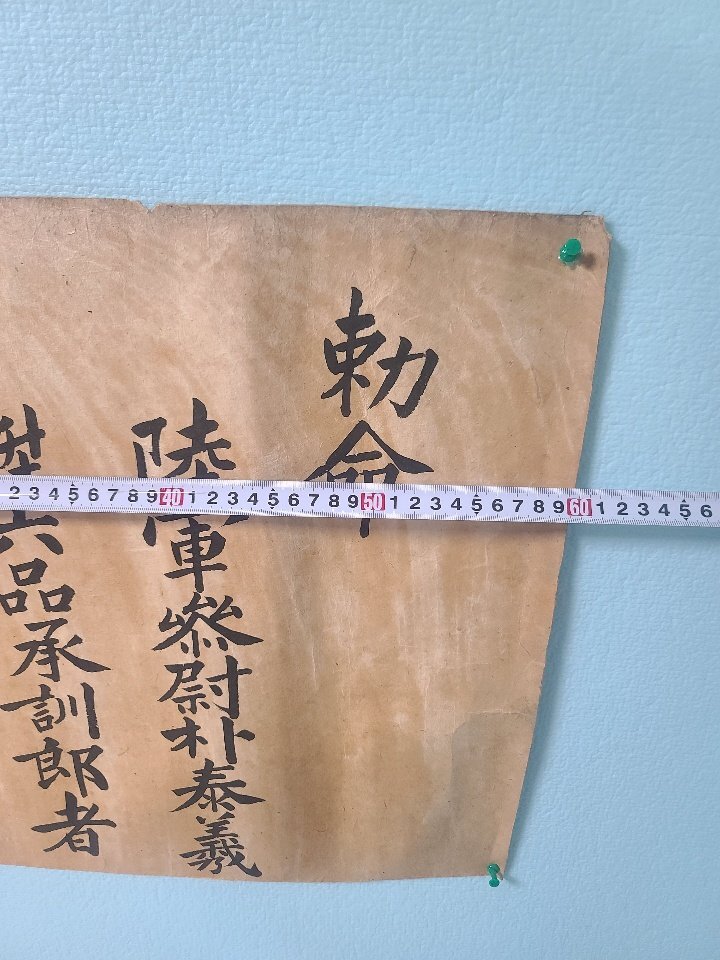 勅命
陸軍參尉朴泰羲
陞六品承訓郎者
2 3 4 5 6 7 8 9 40 1 2 3 4 5 6 7 8 9 50 1 2 3 4 5 6 7 8 9 60 1 2 3 4 5 6